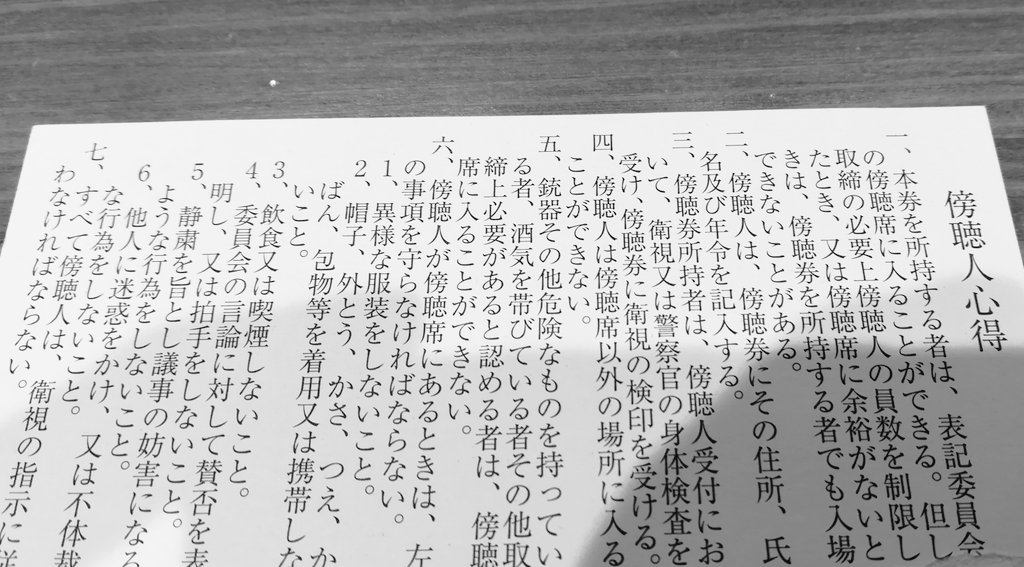 傍聴人心得
一、本券を所持する者は、表記委員会
の傍聴席に入ることができる。但し
取締の必要上傍聴人の員数を制限し
たとき、又は傍聴席に余裕がないと
きは、傍聴券を所持する者でも入場
できないことがある。
二、傍聴人は、傍聴券にその住所、氏
名及び年令を記入する。
三、傍聴券所持者は、傍聴人受付にお
いて、衛視又は警察官の身体検査を
受け、傍聴券に衛視の検印を受ける。
四、傍聴人は傍聴席以外の場所に入る
ことができない。
五、銃器その他危険なものを持ってい
る者、酒気を帯びている者その他取
締上必要があると認める者は、傍聴
席に入ることができない。
六、傍聴人が傍聴席にあるときは、左
の事項を守らなければならない。
1、異様な服装をしないこと。
2、帽子、外とう、かさ、つえ、か
ばん、包物等を着用又は携帯しな
いこと。
3、飲食又は喫煙しないこと。
4、委員会の言論に対して賛否を表
明し、又は拍手をしないこと。
5、静粛を旨とし議事の妨害になる
ような行為をしないこと。
6、他人に迷惑をかけ、又は不体裁
な行為をしないこと。
七、すべて傍聴人は、衛視の指示に従
わなければならない。